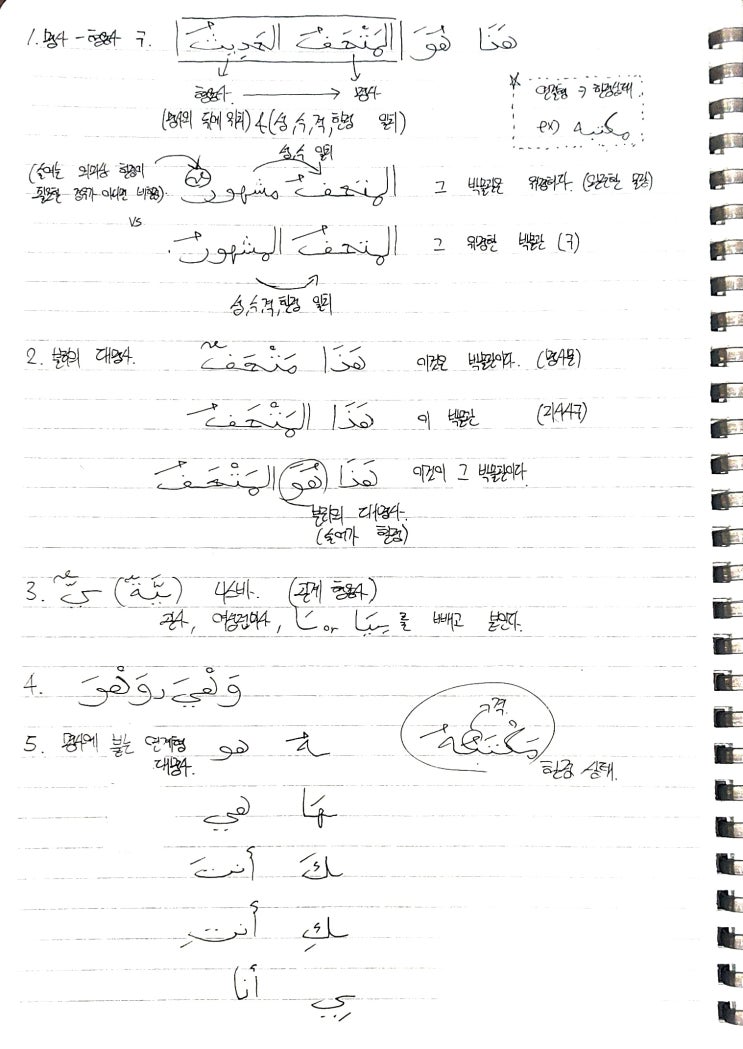 1. 명사 - 형용사 구. هَذَا هُوَ المَتْحَفُ الحَدِيثُ
형용사 → 명사
(명사의 뒤에 위치) (성,수,격,한정 일치)
* 연결형 ⇒ 한정상태
ex) مكتبه
성,수 일치
(술어는 의미상 한정이
필요한 경우가 아니면 비한정)
المتحفُ مشهورٌ 그 박물관은 유명하다. (완전한 문장)
vs
المتحفُ المشهورُ 그 유명한 박물관 (구)
성,수,격,한정 일치
2. 분리의 대명사. هَذَا مَتْحَفٌ 이것은 박물관이다. (명사문)
هَذَا المَتْحَفُ 이 박물관 (지시사구)
هَذَا هُوَ المَتْحَفُ 이것이 그 박물관이다.
분리의 대명사.
(술어가 한정)
3. ـِيٌّ (ـِيَّةٌ) 니스바. (관계 형용사)
관사, 여성접미사, ـَا or ـِيَا를 빼고 붙인다.
4. وَهْيَ، وَهْوَ
5. 명사에 붙는 연계형
대명사.
هو ـهُ
مَكْتَبُهُ
격.
한정 상태.
هي هَا
أنتَ ـكَ
أنتِ ـكِ
أنا ـِي